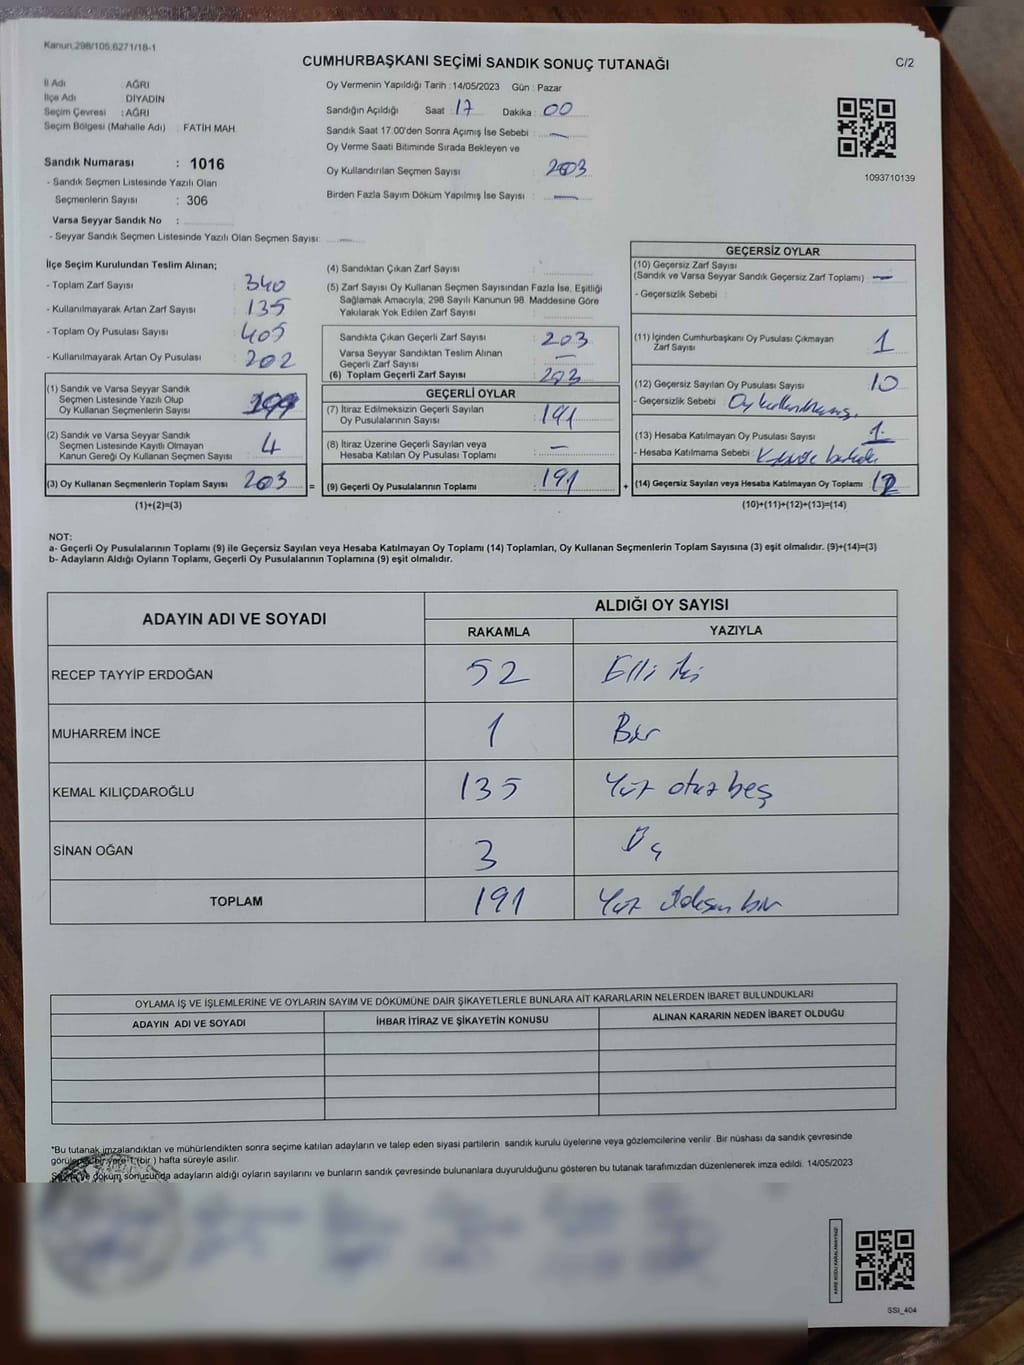 Kanun,298/105,6271/18-1
CUMHURBAŞKANI SEÇİMİ SANDIK SONUÇ TUTANAĞI
C/2
İl Adı : AĞRI
İlçe Adı : DİYADİN
Seçim Çevresi : AĞRI
Seçim Bölgesi (Mahalle Adı) : FATİH MAH.
Sandık Numarası : 1016
- Sandık Seçmen Listesinde Yazılı Olan
Seçmenlerin Sayısı : 306
Varsa Seyyar Sandık No :
- Seyyar Sandık Seçmen Listesinde Yazılı Olan Seçmen Sayısı: —
Oy Vermenin Yapıldığı Tarih : 14/05/2023 Gün : Pazar
Sandığın Açıldığı Saat : 17 Dakika : 00
Sandık Saat 17.00'den Sonra Açımış İse Sebebi : —
Oy Verme Saati Bitiminde Sırada Bekleyen ve
Oy Kullandırılan Seçmen Sayısı : 203
Birden Fazla Sayım Döküm Yapılmış İse Sayısı : —
1093710139
İlçe Seçim Kurulundan Teslim Alınan;
- Toplam Zarf Sayısı : 340
- Kullanılmayarak Artan Zarf Sayısı : 135
- Toplam Oy Pusulası Sayısı : 405
- Kullanılmayarak Artan Oy Pusulası : 202
(1) Sandık ve Varsa Seyyar Sandık
Seçmen Listesinde Yazılı Olup
Oy Kullanan Seçmenlerin Sayısı : 199
(2) Sandık ve Varsa Seyyar Sandık
Seçmen Listesinde Kayıtlı Olmayan
Kanun Gereği Oy Kullanan Seçmen Sayısı : 4
(3) Oy Kullanan Seçmenlerin Toplam Sayısı : 203 =
(1)+(2)=(3)
(4) Sandıktan Çıkan Zarf Sayısı :
(5) Zarf Sayısı Oy Kullanan Seçmen Sayısından Fazla İse, Eşitliği
Sağlamak Amacıyla, 298 Sayılı Kanunun 98. Maddesine Göre
Yakılarak Yok Edilen Zarf Sayısı :
Sandıkta Çıkan Geçerli Zarf Sayısı : 203
Varsa Seyyar Sandıktan Teslim Alınan
Geçerli Zarf Sayısı : —
(6) Toplam Geçerli Zarf Sayısı : 203
GEÇERLİ OYLAR
(7) İtiraz Edilmeksizin Geçerli Sayılan
Oy Pusulalarının Sayısı : 191
(8) İtiraz Üzerine Geçerli Sayılan veya
Hesaba Katılan Oy Pusulası Toplamı : —
(9) Geçerli Oy Pusulalarının Toplamı : 191 +
GEÇERSİZ OYLAR
(10) Geçersiz Zarf Sayısı
(Sandık ve Varsa Seyyar Sandık Geçersiz Zarf Toplamı) : —
- Geçersizlik Sebebi :
(11) İçinden Cumhurbaşkanı Oy Pusulası Çıkmayan
Zarf Sayısı : 1
(12) Geçersiz Sayılan Oy Pusulası Sayısı : 10
- Geçersizlik Sebebi : Oy
(13) Hesaba Katılmayan Oy Pusulası Sayısı : 1
- Hesaba Katılmama Sebebi :
(14) Geçersiz Sayılan veya Hesaba Katılmayan Oy Toplamı : 12
(10)+(11)+(12)+(13)=(14)
NOT:
a- Geçerli Oy Pusulalarının Toplamı (9) ile Geçersiz Sayılan veya Hesaba Katılmayan Oy Toplamı (14) Toplamları, Oy Kullanan Seçmenlerin Toplam Sayısına (3) eşit olmalıdır. (9)+(14)=(3)
b- Adayların Aldığı Oyların Toplamı, Geçerli Oy Pusulalarının Toplamına (9) eşit olmalıdır.
ADAYIN ADI VE SOYADI
ALDIĞI OY SAYISI
RAKAMLA YAZIYLA
RECEP TAYYİP ERDOĞAN 52 Elli iki
MUHARREM İNCE 1 Bir
KEMAL KILIÇDAROĞLU 135 Yüz otuz beş
SİNAN OĞAN 3 Üç
TOPLAM 191 Yüz doksan bir
OYLAMA İŞ VE İŞLEMLERİNE VE OYLARIN SAYIM VE DÖKÜMÜNE DAİR ŞİKAYETLERLE BUNLARA AİT KARARLARIN NELERDEN İBARET BULUNDUKLARI
ADAYIN ADI VE SOYADI İHBAR İTİRAZ VE ŞİKAYETİN KONUSU ALINAN KARARIN NEDEN İBARET OLDUĞU
*Bu tutanak imzalandıktan ve mühürlendikten sonra seçime katılan adayların ve talep eden siyasi partilerin sandık kurulu üyelerine veya gözlemcilerine verilir. Bir nüshası da sandık çevresinde
görülecek bir yere 1 (bir) hafta süreyle asılır.
ve döküm sonucunda adayların aldığı oyların sayılarını ve bunların sandık çevresinde bulunanlara duyurulduğunu gösteren bu tutanak tarafımızdan düzenlenerek imza edildi. 14/05/2023
SSI_404